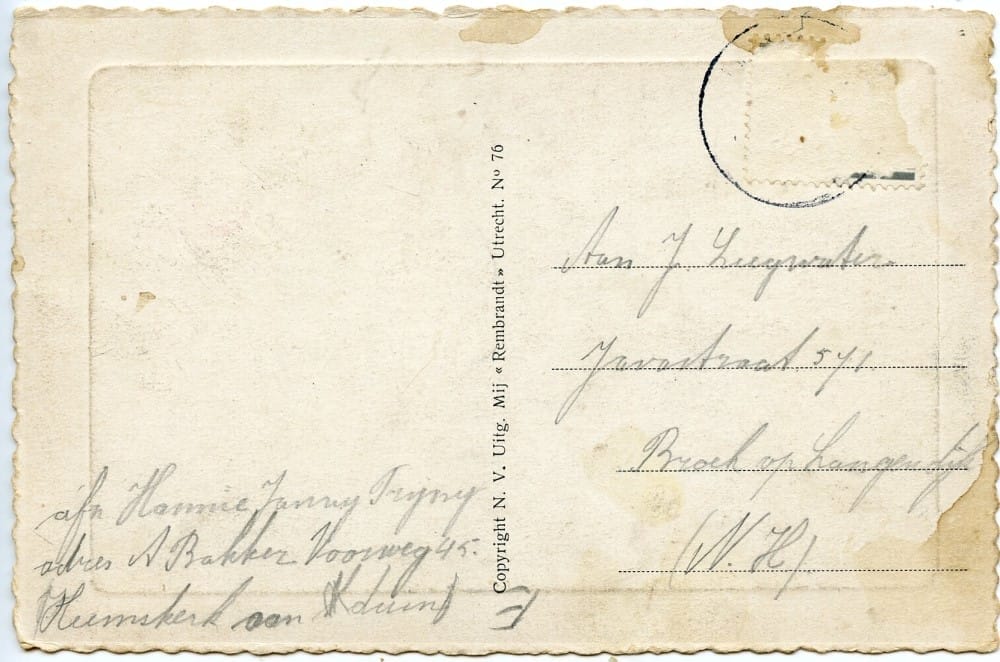 Copyright N. V. Uitg. Mij « Rembrandt » Utrecht. Nº 76
Aan J. Leegwater
Javastraat 571
Broek op Langendijk
(N. H.)
afz Hannie Janny Tryny
adres A Bakker Voorweg 45.
Heemskerk aan duin